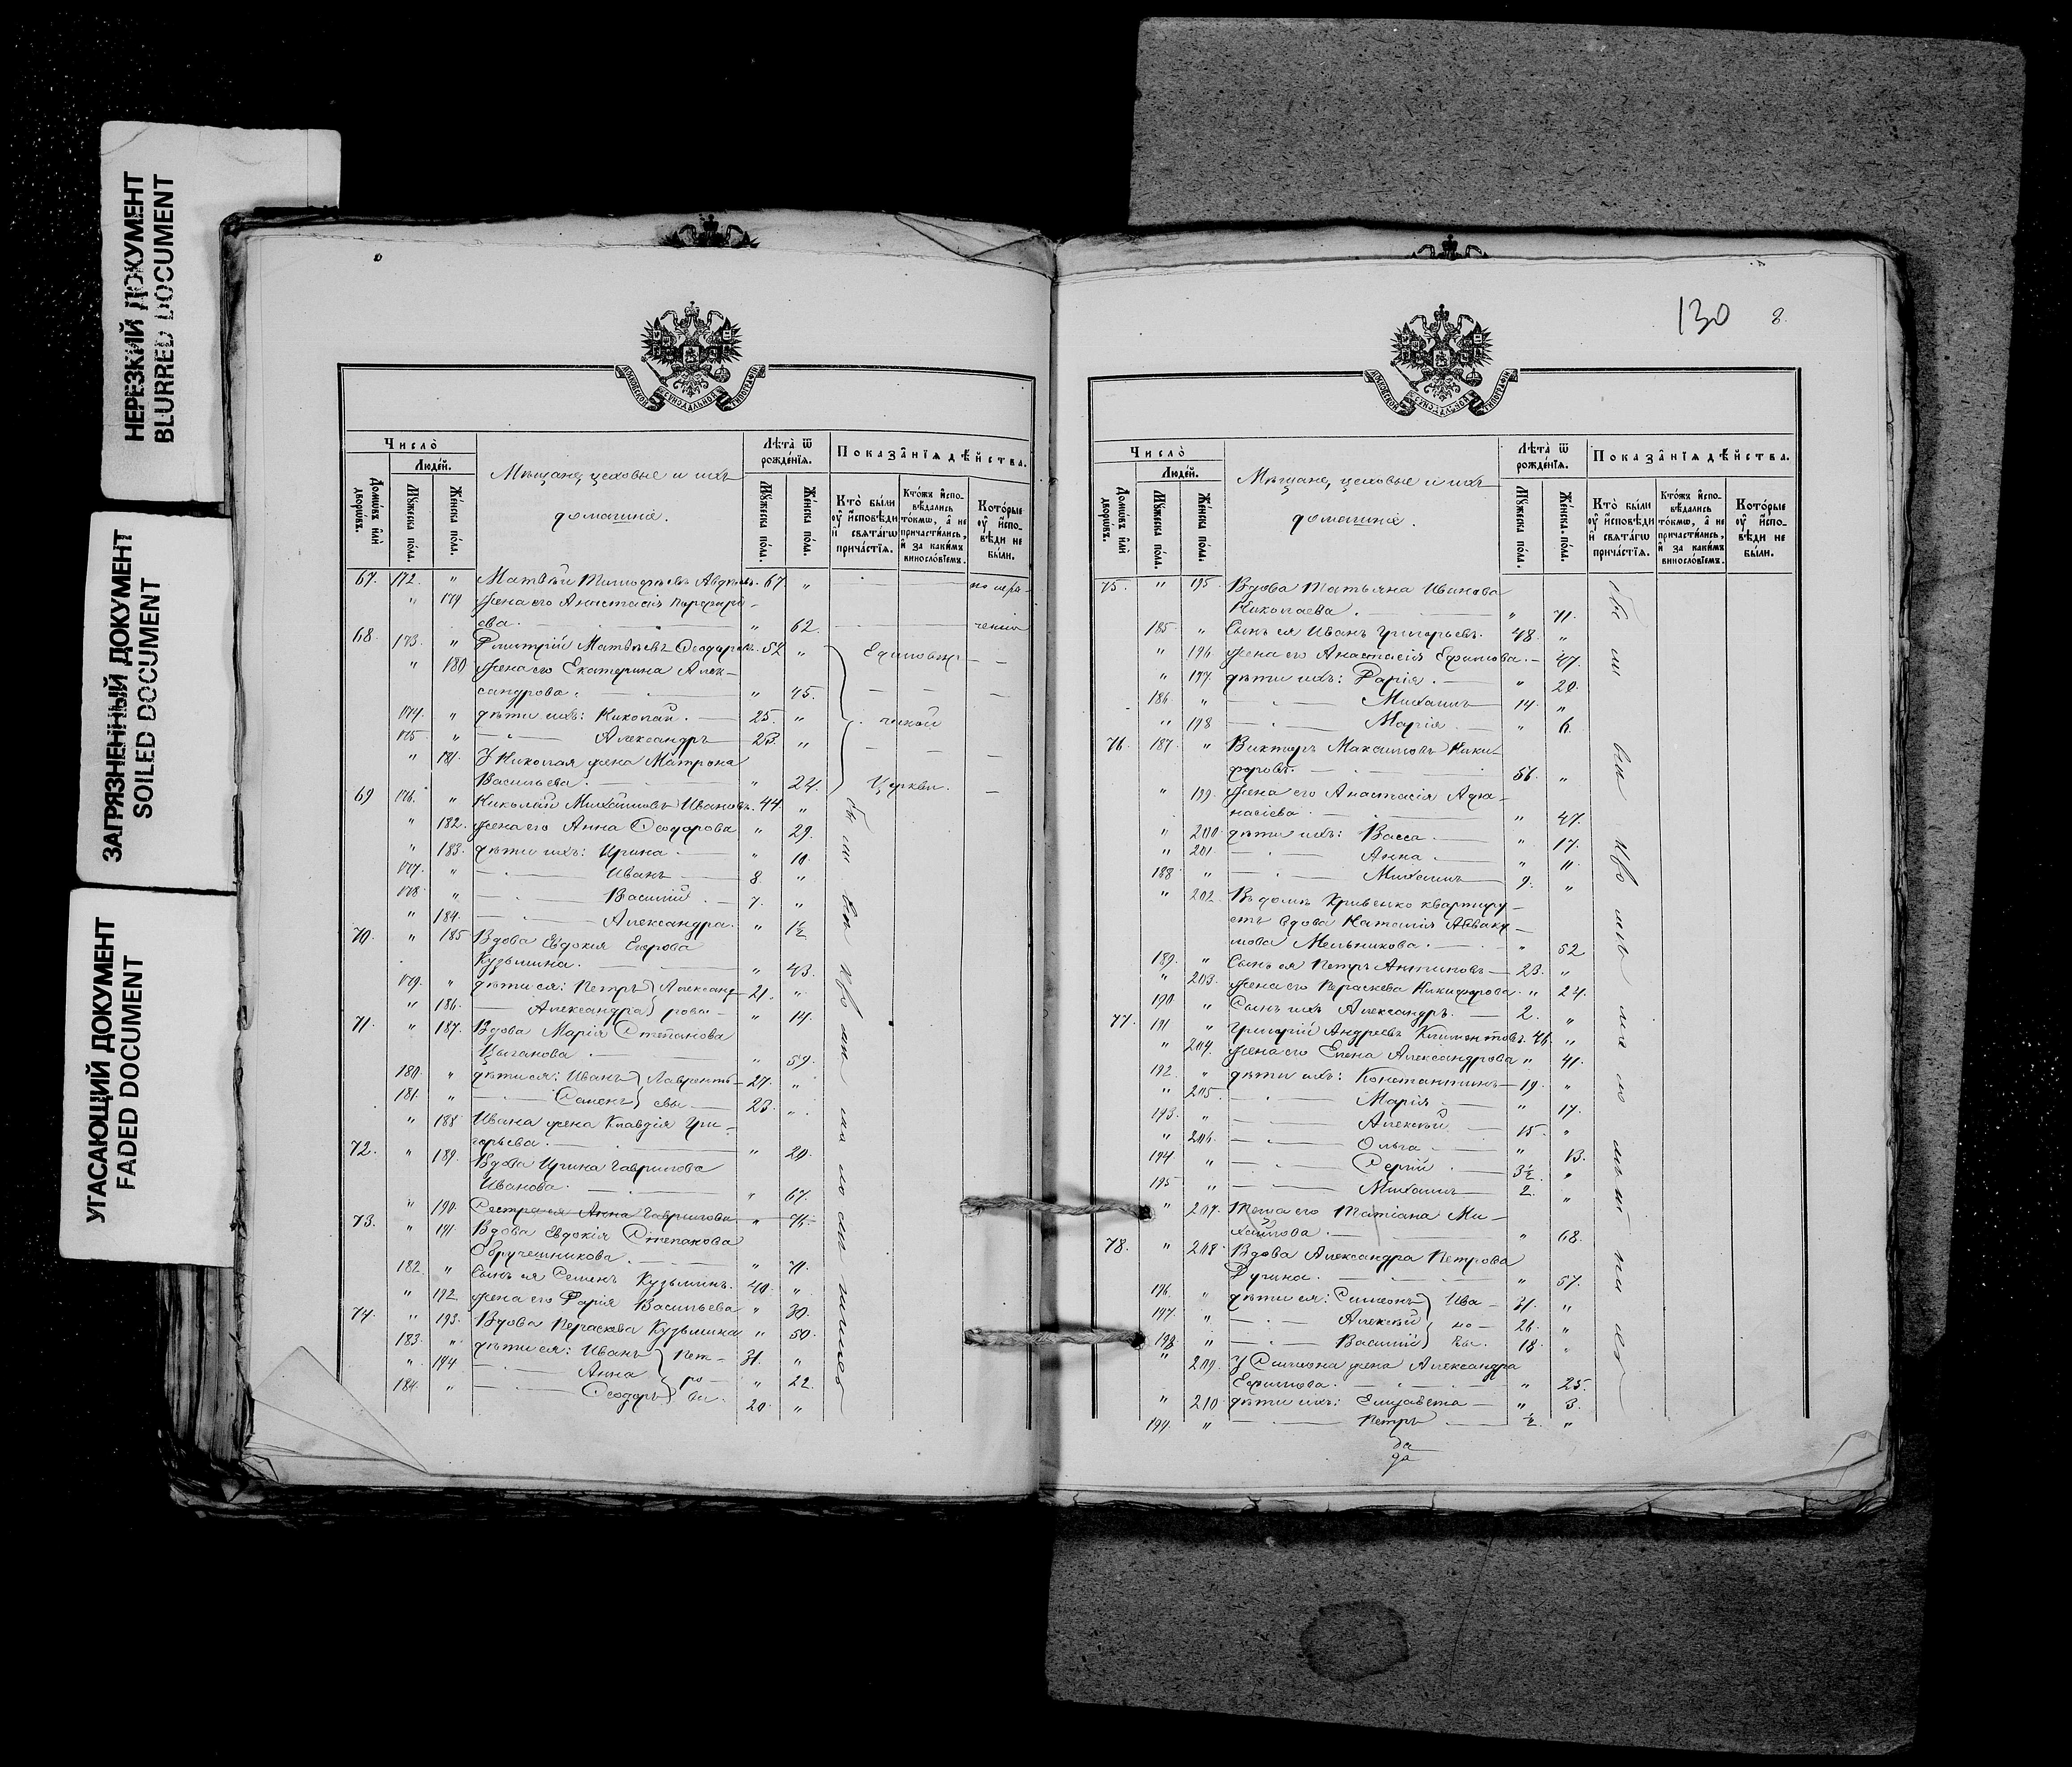 НЕРЕЗКИЙ ДОКУМЕНТ
BLURRED DOCUMENT
ЗАГРЯЗНЕННЫЙ ДОКУМЕНТ
SOILED DOCUMENT
УГАСАЮЩИЙ ДОКУМЕНТ
FADED DOCUMENT
Число̀
Люде́й.
Домѡ́въ и҆лѝ дворѡ́въ.
Мꙋ́жеска по́ла.
Же́нска по́ла.
Мѣщане, цеховые и ихъ
домашніе.
Лѣта̀ ѿ рожде́нїѧ.
Мꙋ́жеска по́ла.
Же́нска по́ла.
Показа̑нїѧ дѣ́йства.
Кто̀ бы́ли ᲂу҆ и҆сповѣ́ди и҆ свѧта́гѡ прича́стїѧ.
Кто́жъ и҆сповѣ́дались то́кмѡ, а҆ не причасти́лись, и҆ за каки́мъ винословїемъ.
Кото́рые ᲂу҆ и҆сповѣ́ди не бы́ли.
67. 172. " Матвѣй Тимофѣевъ Авдѣевъ. 67 "
" 179 Жена его Анастасія Порфирі-
ева. " 62.
68. 173. " Дмитрій Матвѣевъ Ѳеодоровъ. 52 " Единовѣр-
" 180 Жена его Екатерина Алек-
сандрова. " 45.
174. " дѣти ихъ: Николай. 25. " ческой
175. " Александръ 23. "
" 181. У Николая жена Матрона
Васильева. " 24. Церкви.
69 176. " Николай Михайловъ Ивановъ. 44. "
" 182. Жена его Анна Ѳеодорова " 29.
" 183. дѣти ихъ: Ирина " 10
177. " Иванъ 8. "
178. " Василій 7. "
" 184. Александра. " 1½
70. " 185 Вдова Евдокія Егорова
Кузьмина. " 43.
179. " дѣти ея: Петръ Александ- 21. "
" 186. Александра ровы " 14.
71. " 187. Вдова Марія Степанова
Цыганова " 59.
180. " дѣти ея: Иванъ Лавренть- 27. "
181. " Семенъ евы 23. "
" 188 Ивана жена Клавдія Гри-
горьева. " 20.
72. " 189. Вдова Ирина Гаврилова
Иванова. " 67.
" 190. Сестра ея Анна Гаврилова "
73. " 191. Вдова Евдокія Степанова
Обручешникова " 71.
182. " Сынъ ея Семенъ Кузьминъ. 40. "
" 192. Жена его Дарія Васильева " 30.
74. " 193. Вдова Параскева Кузьмина " 50.
183. " дѣти ея: Иванъ Пет- 31. "
" 194 Анна ро- " 22.
184. " Ѳеодоръ вы. 20. "
130 8.
Число̀
Люде́й.
Домѡ́въ и҆лѝ дворѡ́въ.
Мꙋ́жеска по́ла.
Же́нска по́ла.
Мѣщане, цеховые и ихъ
домашніе.
Лѣта̀ ѿ рожде́нїѧ.
Мꙋ́жеска по́ла.
Же́нска по́ла.
Показа̑нїѧ дѣ́йства.
Кто̀ бы́ли ᲂу҆ и҆сповѣ́ди и҆ свѧта́гѡ прича́стїѧ.
Кто́жъ и҆сповѣ́дались то́кмѡ, а҆ не причасти́лись, и҆ за каки́мъ винословїемъ.
Кото́рые ᲂу҆ и҆сповѣ́ди не бы́ли.
75. " 195 Вдова Татьяна Иванова
Николаева. " 71.
185. " Сынъ ея Иванъ Григорьевъ. 48. "
" 196 Жена его Анастасія Ефимова. 47.
" 197 дѣти ихъ: Дарія. " 20.
186. " Михаилъ 14. "
" 198 Марія " 6.
76. 187. " Викторъ Максимовъ Ники-
форовъ. 56. "
" 199. Жена его Анастасія Афа-
насіева. " 47.
" 200. дѣти ихъ: Васса " 17.
" 201. Анна " 11.
188. " Михаилъ 9. "
" 202. Въ домѣ Кривенко квартиру-
етъ вдова Наталія Аввак-
умова Мельникова. " 52
189. " Сынъ ея Петръ Антиповъ 23. "
" 203. Жена его Параскева Никифорова. " 24.
190 " Сынъ ихъ Александръ. 2. "
77. 191 " Григорій Андреевъ Климентовъ. 46. "
" 204. Жена его Елена Александрова " 41.
192. " дѣти ихъ: Константинъ 19. "
" 205. Марія " 17.
193. " Алексѣй 15. "
" 206. Ольга " 13.
194 " Сергій 3½ "
195 " Михаилъ 2. "
" 207. Теща его Татіана Ми-
хайлова. " 68.
78. " 208. Вдова Александра Петрова
" 57.
196. " дѣти ея: Симеонъ Ива- 31. "
197. " Алексѣй но- 26. "
198. " Василій вы. 18. "
" 209. У Симеона жена Александра
Ефимова. " 25.
" 210 дѣти ихъ: Елизавета " 3.
199. " Петръ ½. "